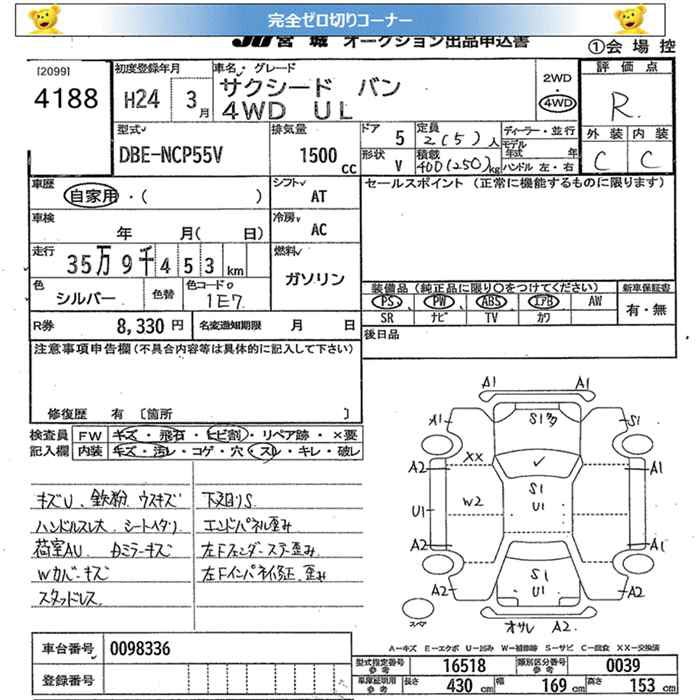 完全ゼロ切りコーナー
JU宮城 オークション出品申込書
①会場控
[2099]
4188
初度登録年月
H24 3月
車名・グレード
サクシード バン
4WD UL
2WD
4WD
評価点
R
外装 内装
C C
型式
DBE-NCP55V
排気量
1500 cc
ドア 5
形状 V
定員 2(5)人
積載 400(250)kg
ディーラー・並行
モデル年式 年
ハンドル 左・右
車歴
自家用・( )
シフト AT
セールスポイント (正常に機能するものに限ります)
車検
年 月( 日)
冷房 AC
走行
35万9千453km
燃料
ガソリン
色
シルバー
色替
色コードo
1E7
装備品 (純正品に限り○をつけてください)
新車保証書
PS PW ABS エアB AW
有・無
SR ナビ TV カワ
R券 8,330円
名変通知期限 月 日
後日品
注意事項申告欄(不具合内容等は具体的に記入して下さい)
修復歴 有 [箇所 ]
検査員 FW キズ・飛石・ヒビ割・リペア跡・×要
記入欄 内装 キズ・汚レ・コゲ・穴・スレ・キレ・破レ
キズU、鉄粉、ウスキズ
ハンドルスレ大 シートヘタリ
荷室AU、カミラーキズ
Wカバーキズ
スタッドレス
下廻りS
エンドパネル歪み
左Fフェンダーステー歪み
左Fインパネ修正、歪み
A1 A1
A1 S1タ S1
A2 XX A1
W2 S1
U1 U1 A1
A2 A2
A2 S1 A2
U1
スペア
オサレ A2
A=キズ E=エクボ U=凹み W=補修跡 S=サビ C=腐食 XX=交換済
車台番号 0098336
登録番号
型式指定番号 参考 16518
類別区分番号 参考 0039
車庫証明用 参考 長さ 430cm 幅 169cm 高さ 153cm